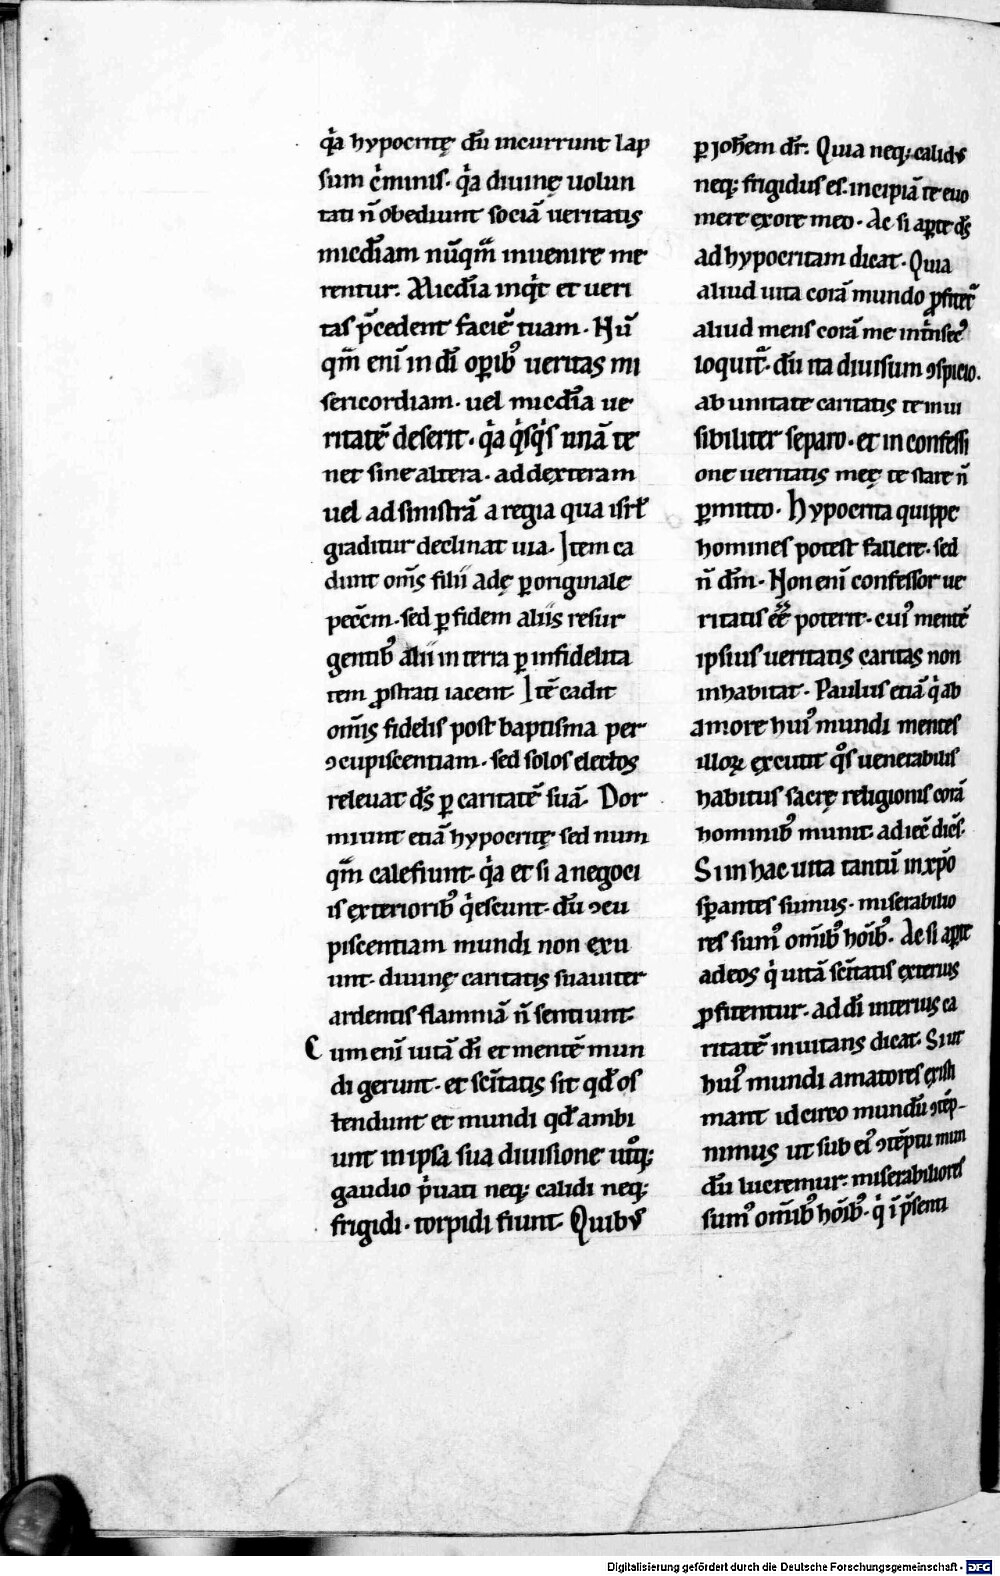 qͥa hypocritę dū incurrunt lap
sum cͥminis. qͥa diuinę uolun
tati n̄ obediunt sociā ueritatis
micdīam nūqm̄ inuenire me
rentur. Micdīa inqͥt et ueri
tas p̄cedent faciē tuam. Nū
qm̄ enī in dī oꝑibꝰ ueritas mi
sericordiam. uel micdīa ue
ritatē deserit. qͥa qͥsqͥs unā te
net sine altera. ad dexteram
uel ad sinistrā a regia qua isrł
graditur declinat uia. Item ca
dunt om̄s filii adę ꝑ originale
peccm̄. sed ꝑ fidem aliis resur
gentibꝰ alii in terra ꝑ infidelita
tem ꝓstrati iacent. Itē cadit
om̄is fidelis post baptisma per
ꝯcupiscentiam. sed solos electos
releuat ds̄ ꝑ caritatē suā. Dor
miunt etiā hypocritę sed num
qm̄ calefiunt. qͥa et si a negoci
is exterioribꝰ qͥescunt. dū ꝯcu
piscentiam mundi non exu
unt. diuinę caritatis suauiter
ardentis flammā n̄ sentiunt.
Cum enī uitā dī et mentē mun
di gerunt. et scītatis sit qd̄ os
tendunt et mundi qd̄ ambi
unt in ipsa sua diuisione utͦq;
gaudio pͥuati neq; calidi neq;
frigidi. torpidi fiunt. Quibus
ꝑ ioħem dr̄. Quia neq; calidus
neq; frigidus es. incipiā te euo
mere ex ore meo. Ac si aꝑte ds̄
ad hypocritam dicat. Quia
aliud uita corā mundo ꝓfitet᷑
aliud mens corā me intͥnsecꝰ
loquit᷑. dū ita diuisum ꝯspicio.
ab unitate caritatis te inui
sibiliter separo. et in confessi
one ueritatis meę te stare n̄
ꝑmitto. Hypocrita quippe
homines potest fallere. sed
n̄ dm̄. Non enī confessor ue
ritatis eē̄ poterit. cuiꝰ mentē
ipsius ueritatis caritas non
inhabitat. Paulus etiā qͥ ab
amore huiꝰ mundi mentes
illoꝝ excutit qͦs uenerabilis
habitus sacrę religionis corā
hominibꝰ munit. ad iecē dicēs.
Si in hac uita tantū in xp̄o
sꝑantes sumus. miserabilio
res sumꝰ om̄ibꝰ hoībꝰ. Ac si aꝑte
ad eos qͥ uitā scītatis exterius
ꝓfitentur. ad dī interius ca
ritatē inuitans dicat. Si ut
huiꝰ mundi amatores existi
mant idcirco mundū ꝯtēp-
nimus ut sub eiꝰ ꝯtēptu mun
dū lucremur. miserabiliores
sumꝰ om̄ibꝰ hoībꝰ. qͥ ī p̄senti
Digitalisierung gefördert durch die Deutsche Forschungsgemeinschaft - DFG